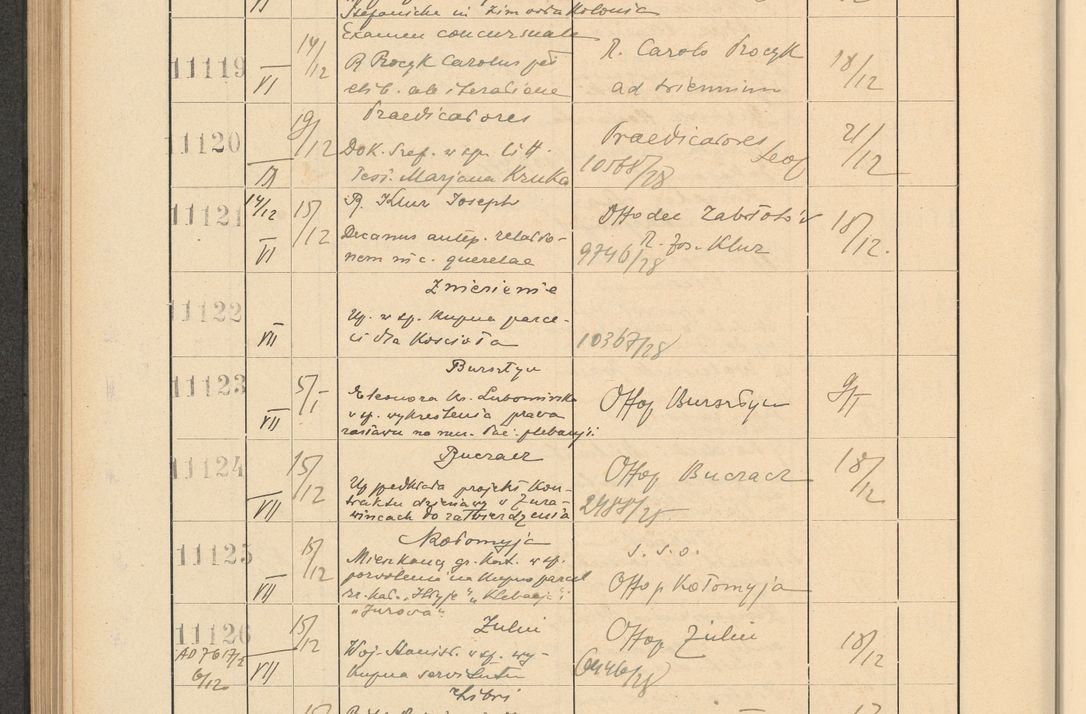 Stefaniche in Zimorska Kolonia
11119 VI 14/12 Examen concursuale
R Procyk Carolus
R. Carolo Procyk
ad triennium
18/12
11120 IX 19/12 Praedicatores
Dok. w sp.
Marjana Kruka
Praedicatores Leop
10568/28
21/12
11121 14/12 VI 15/12 R. Klur Joseph
Decanus antep. relatio-
nem in c. querelae
Off dec Zabłotów
R. Jos. Klur
9746/28
18/12.
11122 VII Zniesienie
Up. w sp. kupna parce-
li dla Kościoła
10367/28
11123 VII 5/I Bursztyn
Eleonora Ks. Lubomirska
w sp. wykreślenia prawa
zastawu na plebanji
Offop Bursztyn
9/I
11124 VII 15/12 Buczacz
Up przedkłada projekt kon-
traktu dzierżawy w Żura-
wińcach do zatwierdzenia
Offop Buczacz
2488/28
18/12
11125 VII 15/12 Kołomyja
Mieszkańcy gr. kat. w sp.
pozwolenia na kupno parcel
rz. kat. i
s. s. o.
Off p Kołomyja
11126 VII 15/12 Żulin
AD 7617/2
6/12
Woj. Stanisł. w sp. wy-
kupna servitutu
Offop Żulin
6446/28
18/12
Libri